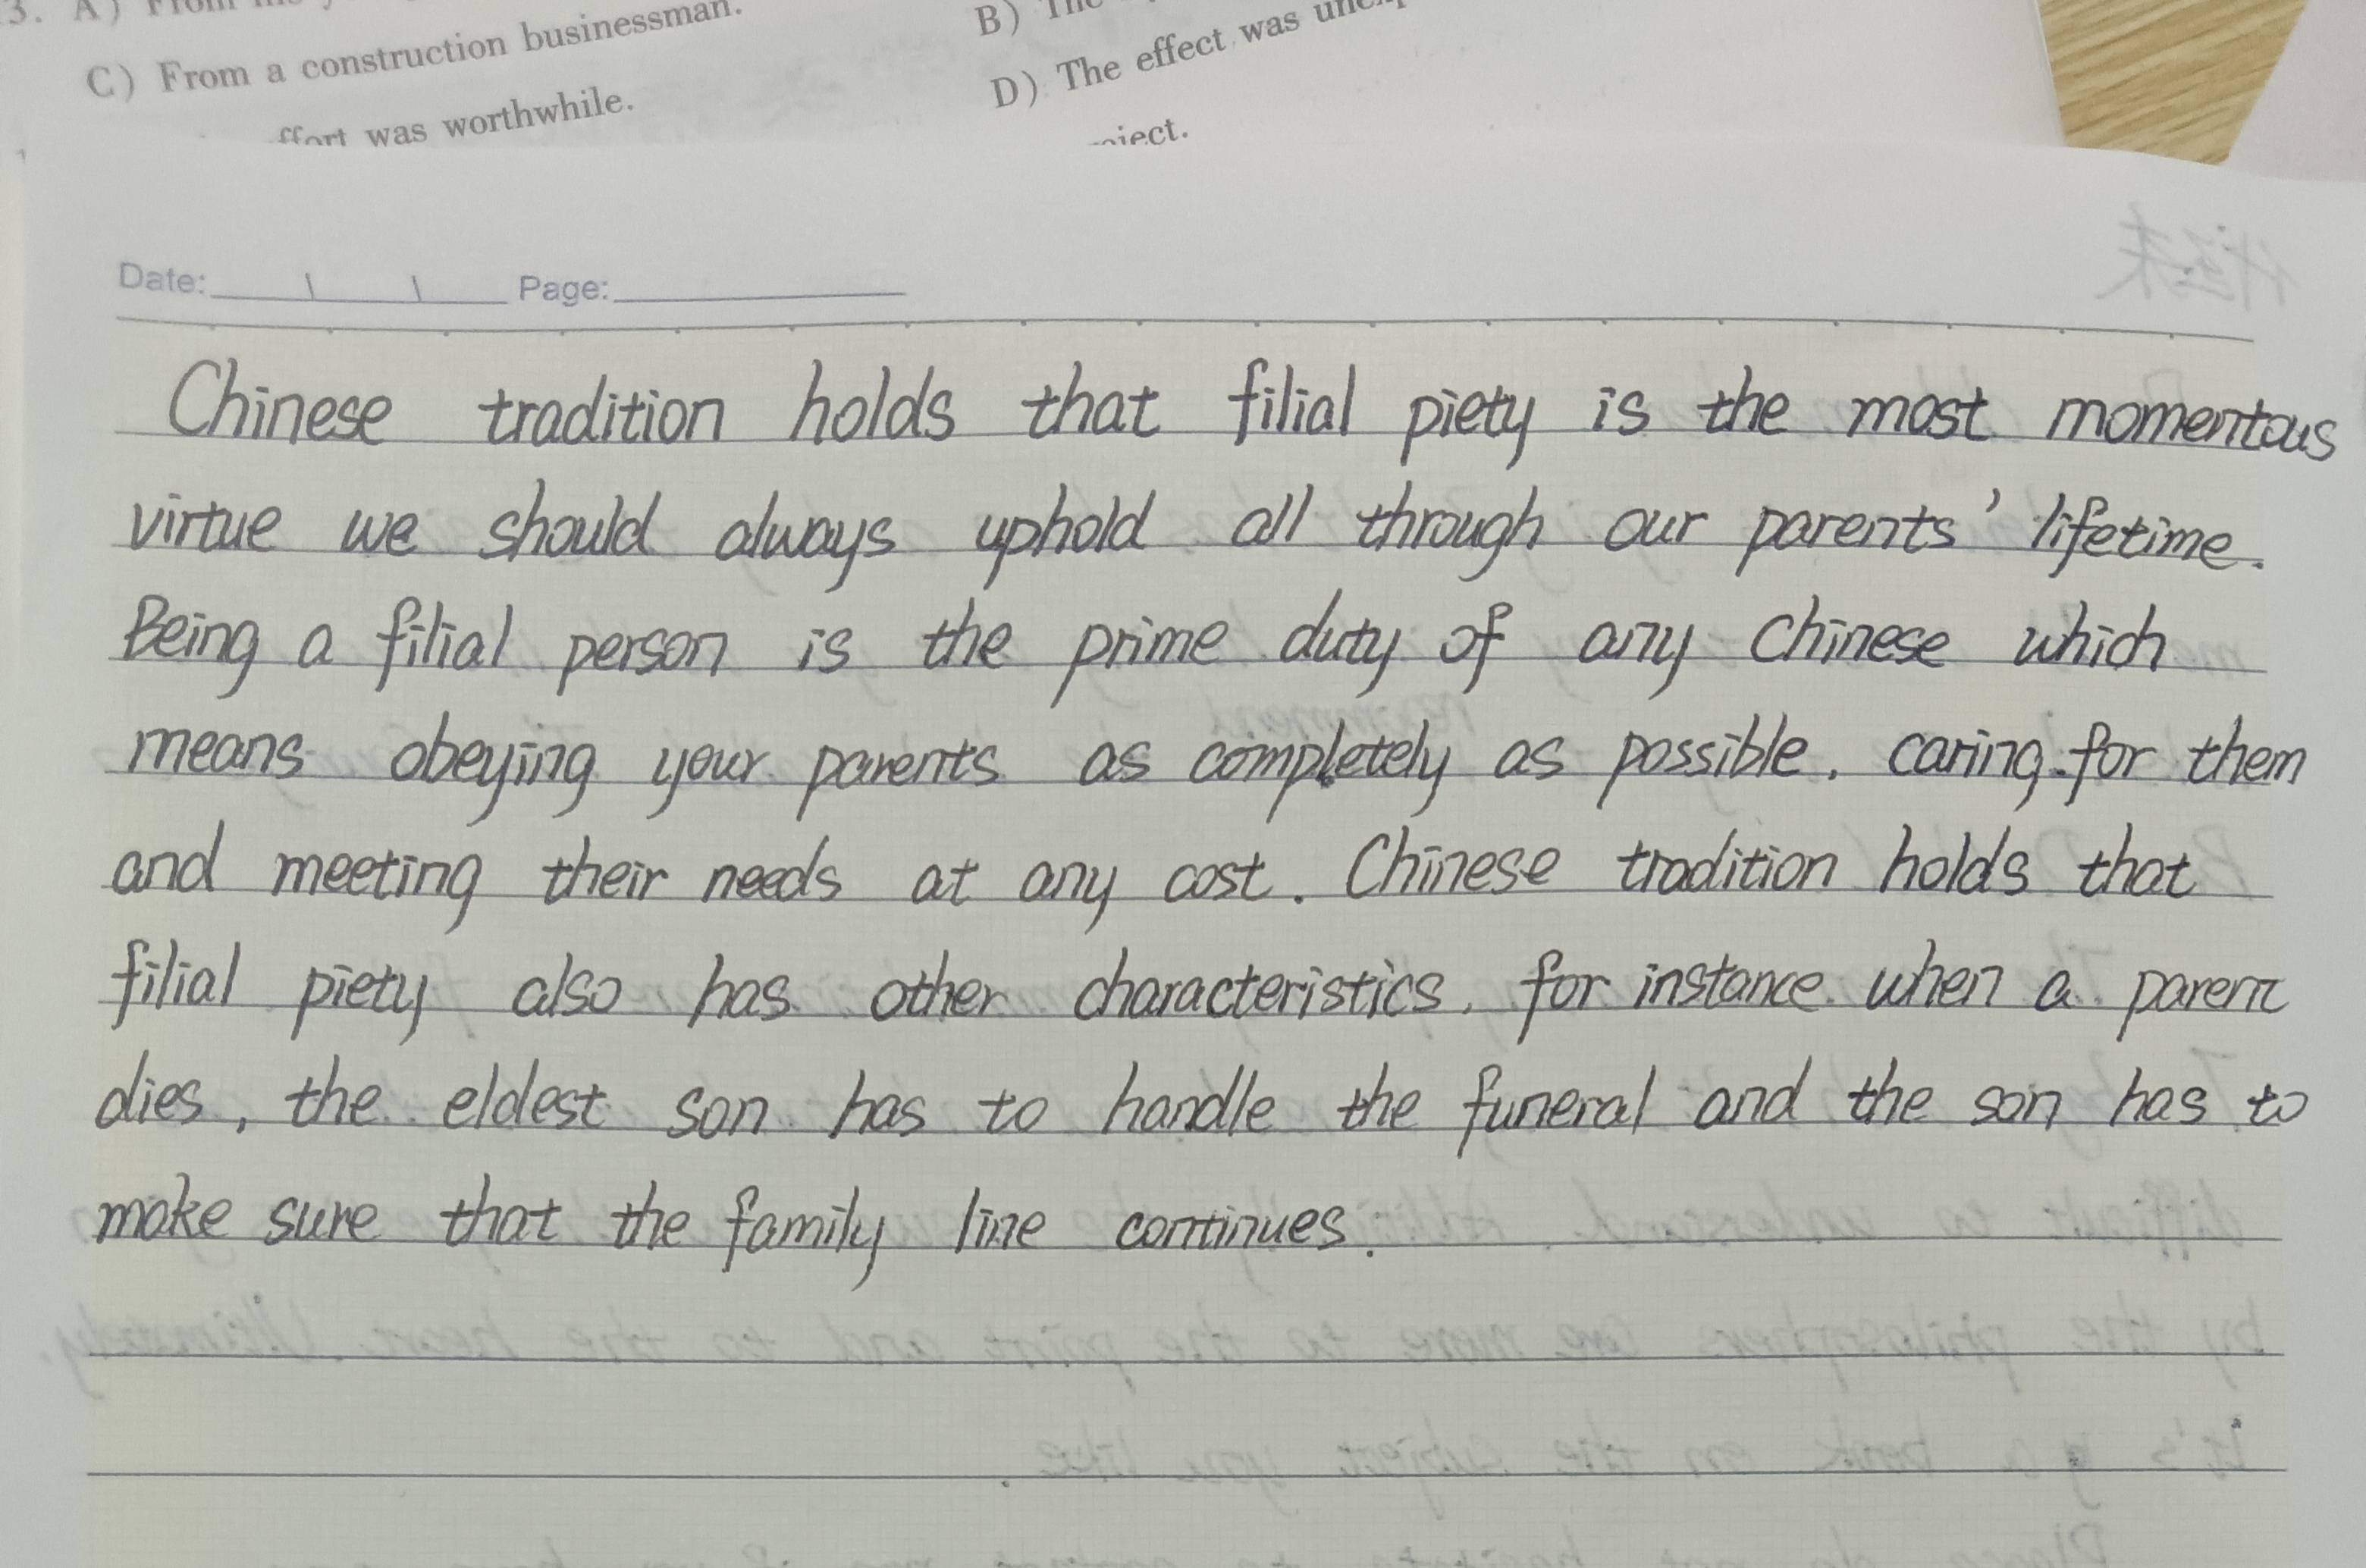 3. A) From
B)
C) From a construction businessman.
D) The effect was
was worthwhile.
Date: Page:
Chinese tradition holds that filial piety is the most momentous
virtue we should always uphold all through our parents' lifetime.
Being a filial person is the prime duty of any Chinese which
means obeying your parents as completely as possible. caring for them
and meeting their needs at any cost. Chinese tradition holds that
filial piety also has other characteristics, for instance when a parent
dies, the eldest son has to handle the funeral and the son has to
make sure that the family line continues.